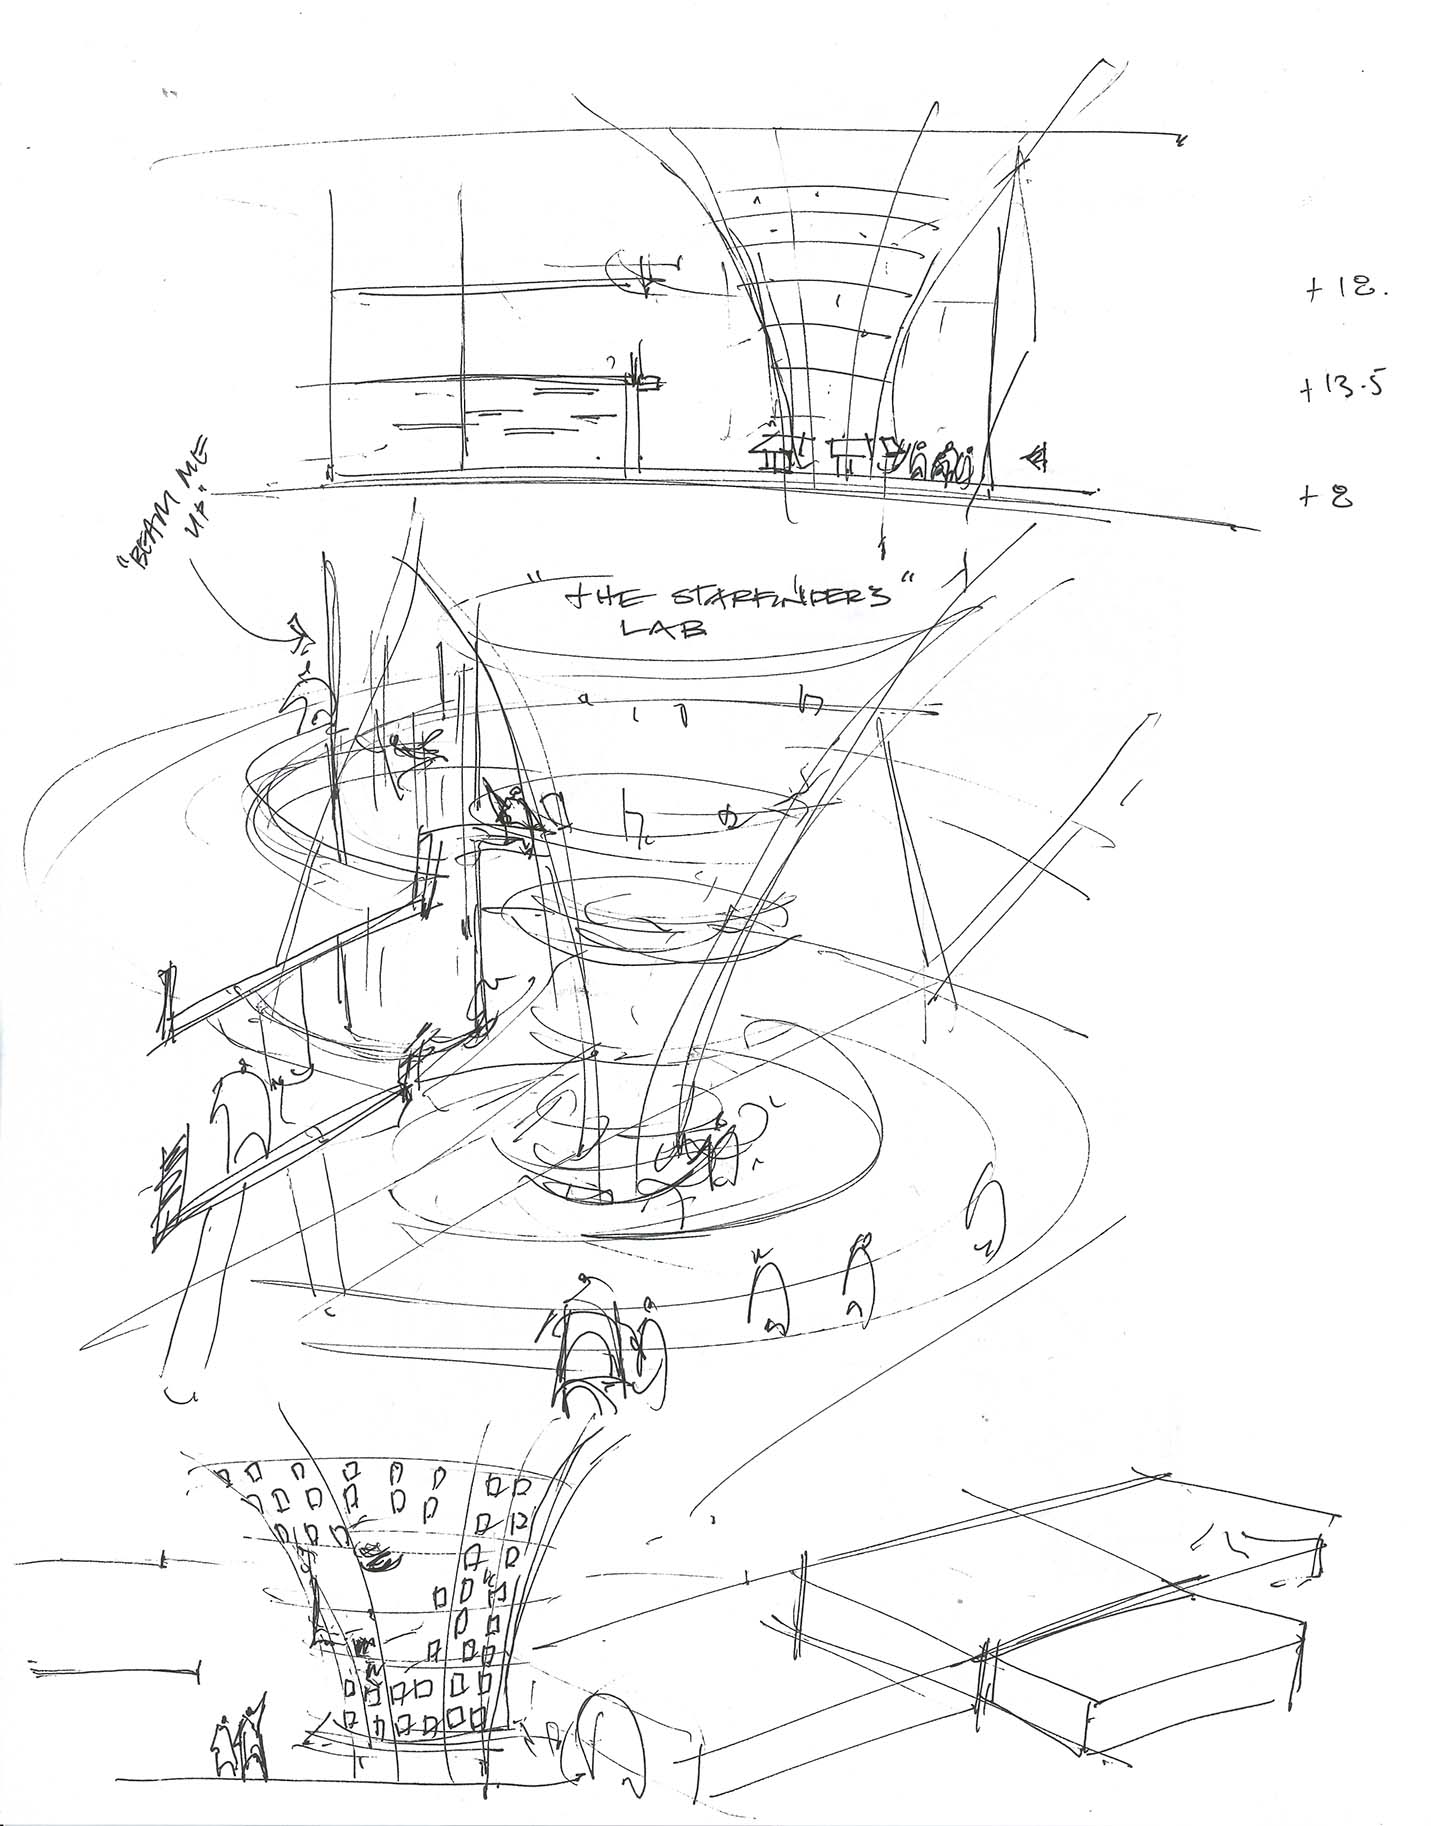 + 18.
+ 13.5
+ 8
"BEAM ME
UP"
"THE STARFINDERS"
LAB